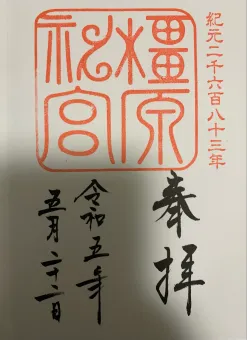 紀元二千六百八十三年
橿原
神宮
奉拝
令和五年
五月二十二日